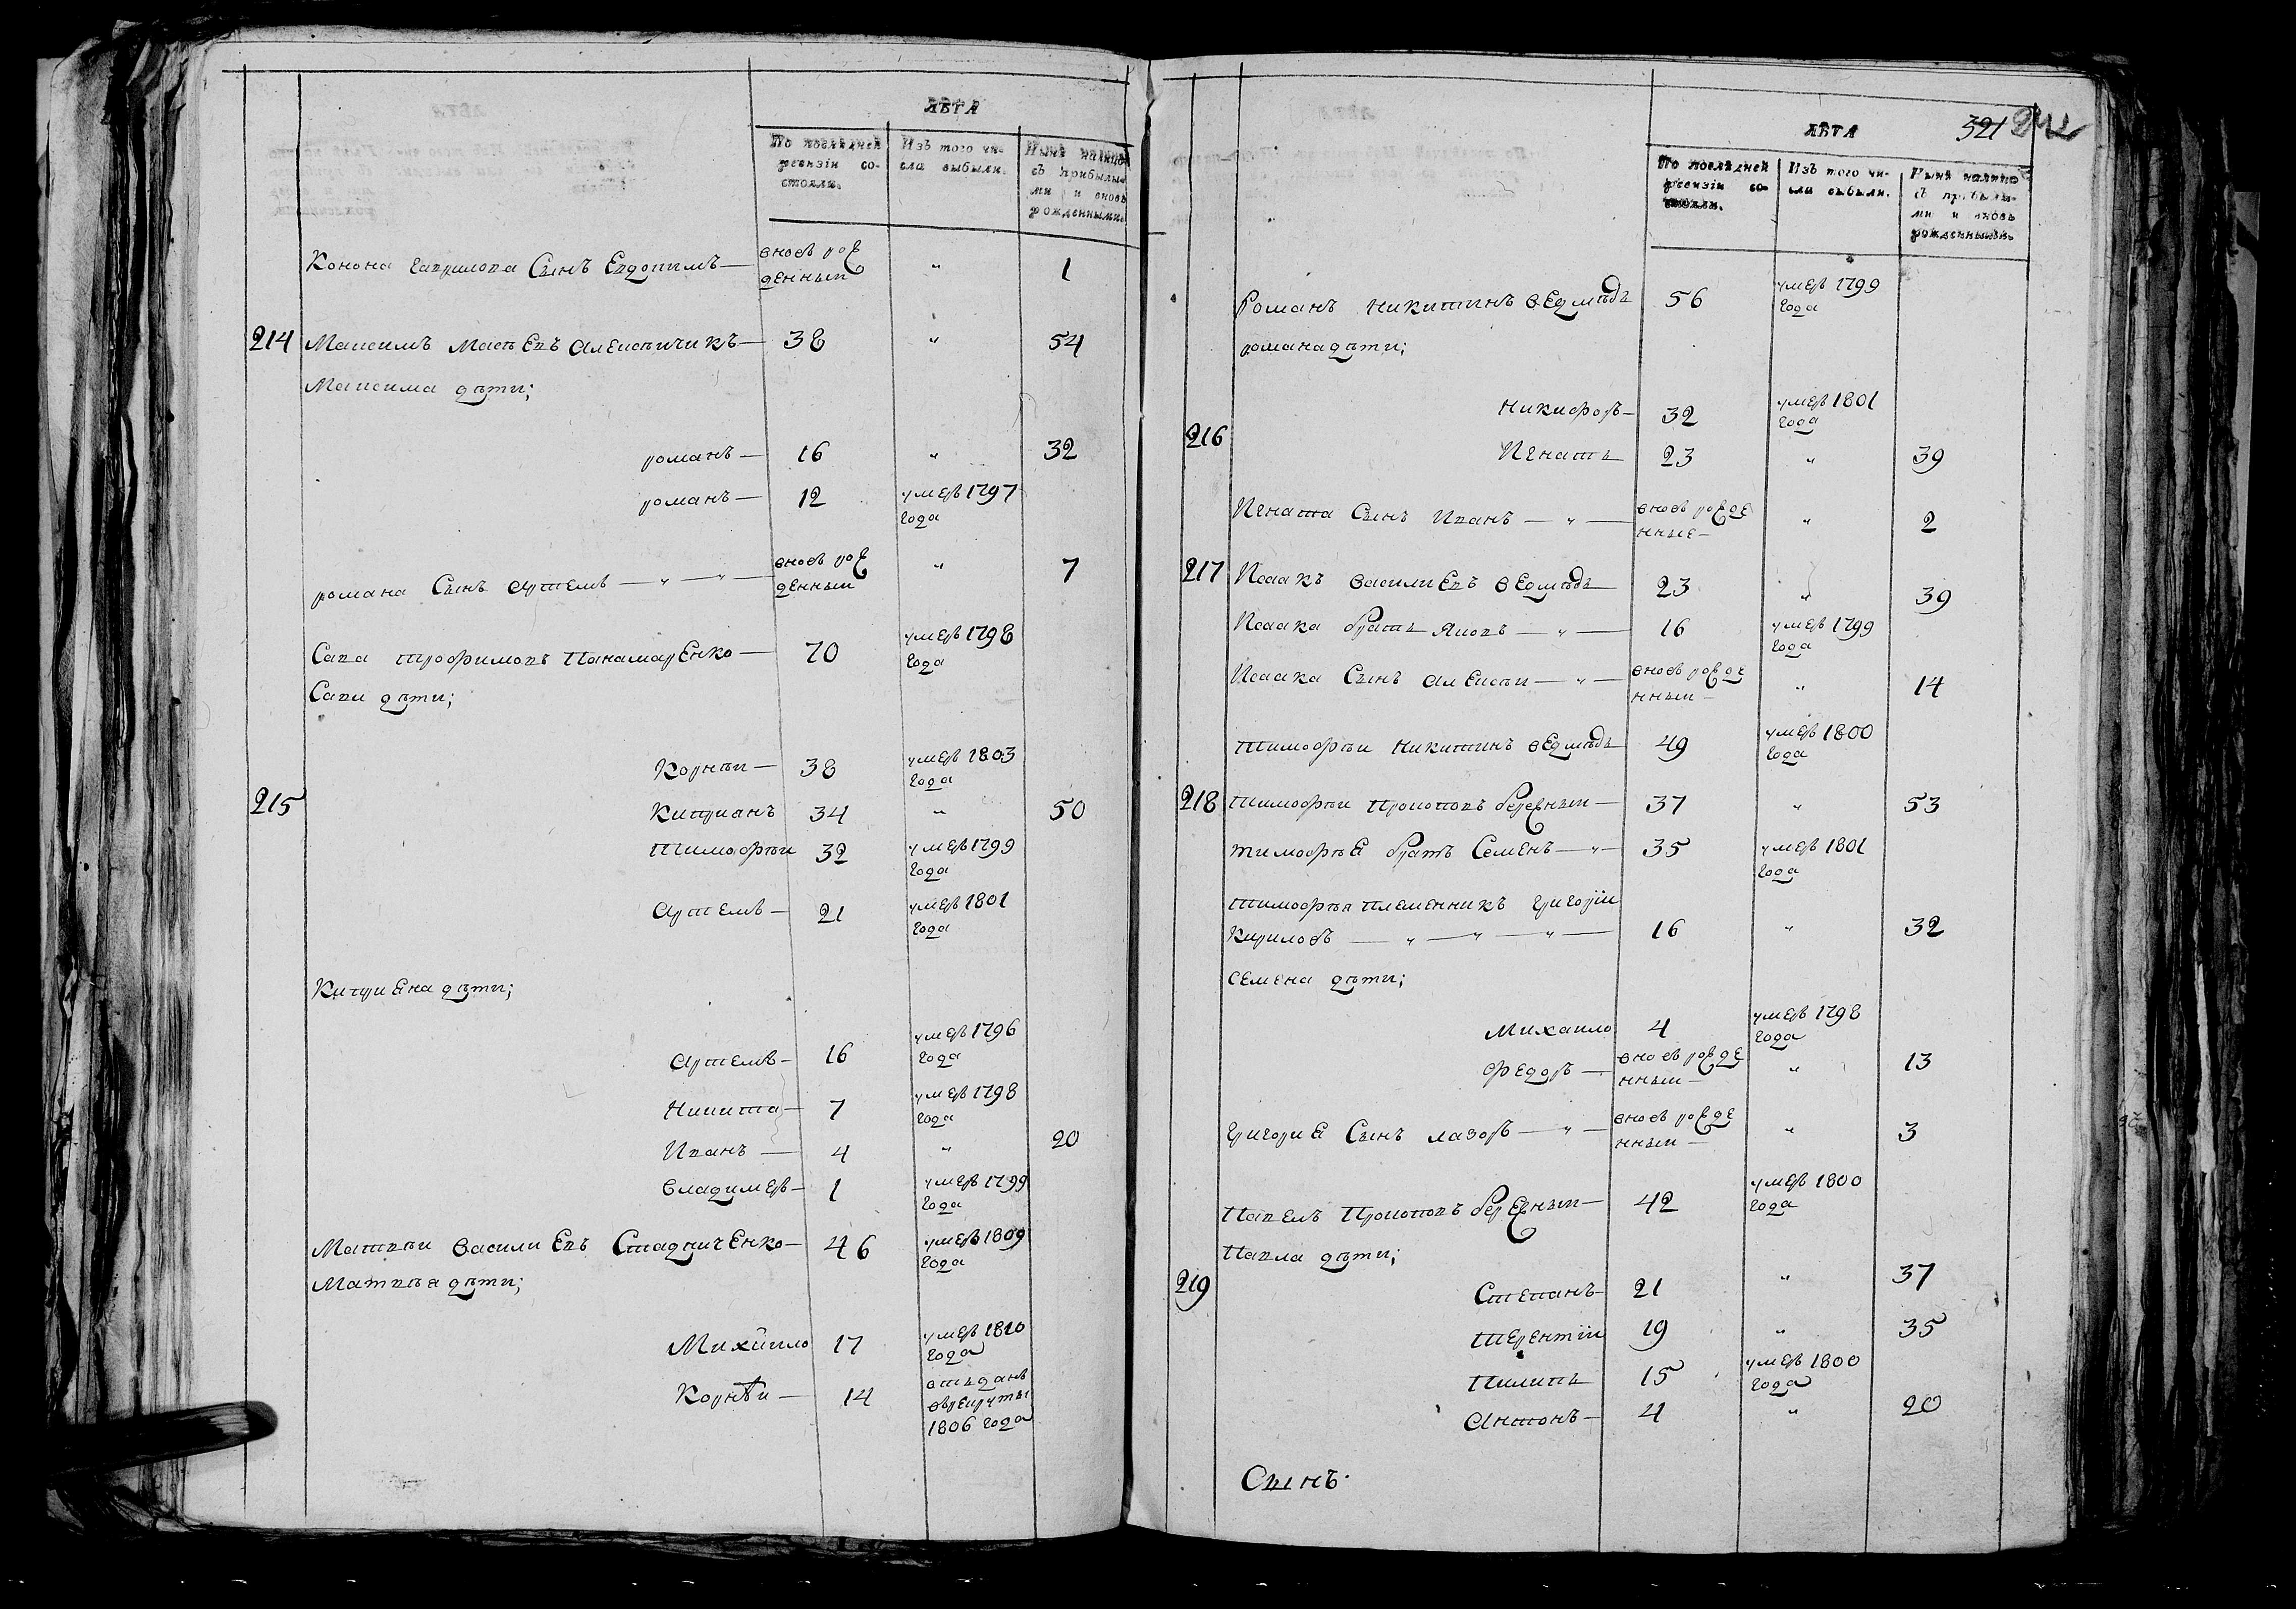 ЛѢТА
По послѣдней ревизіи состояли.
Изъ того числа выбыли.
Нынѣ налицо съ прибылыми и вновь рожденными.
Конона Гаврилова Сынъ Евдокимъ — вновь рожденный " 1
214 Максимъ Масѣевъ Алексѣичикъ — 38 " 54
Максима дѣти;
романъ — 16 " 32
романъ — 12 умеръ 1797 года
романа Сынъ Артемъ — " — " — вновь рожденный " 7
Сава трофимовъ Панамаренко — 70 умеръ 1798 года
Сави дѣти;
Корнѣи — 38 умеръ 1803 года
215 Киприанъ 34 " 50
Тимофѣи 32 умеръ 1799 года
Артемъ — 21 умеръ 1801 года
Киприяна дѣти;
Артемъ — 16 умеръ 1796 года
Никита — 7 умеръ 1798 года
Иванъ — 4 " 20
Владимеръ — 1 умеръ 1799 года
Матвѣи Василиевъ Стадниченко — 46 умеръ 1809 года
Матвѣя дѣти;
Михайло 17 умеръ 1810 года
Корнѣи — 14 отъданъ врекруты 1806 года
321
ЛѢТА
По послѣдней ревизіи состояли.
Изъ того числа выбыли.
Нынѣ налицо съ прибылыми и вновь рожденными.
Романъ Никитинъ ведмѣдь 56 умеръ 1799 года
романа дѣти;
Никифоръ — 32 умеръ 1801 года
216 Игнатъ 23 " 39
Игната Сынъ Иванъ — " — вновь рожденные — " 2
217 Исаакъ василиевъ ведмѣдь — 23 " 39
Исаака братъ Яковъ — " — 16 умеръ 1799 года
Исаака Сынъ Алексѣи — " — вновь рожденныи — " 14
Тимофѣи Никитинъ ведмѣдь 49 умеръ 1800 года
218 Тимофѣи Прокоповъ бережныи — 37 " 53
тимофѣя братъ Семенъ — " — 35 умеръ 1801 года
Тимофѣя племенникъ григоріи
Кириловъ — " — " — " — 16 " 32
Семена дѣти;
Михаило 4 умеръ 1798 года
Федоръ — вновь рожденныи — " 13
григория Сынъ лазоръ — " — вновь рожденныи — " 3
Павелъ Прокоповъ бережныи — 42 умеръ 1800 года
Павла дѣти;
219 Степанъ 21 " 37
терентіи 19 " 35
Пилипъ 15 умеръ 1800 года
Антонъ — 4 " 20
Сынъ.